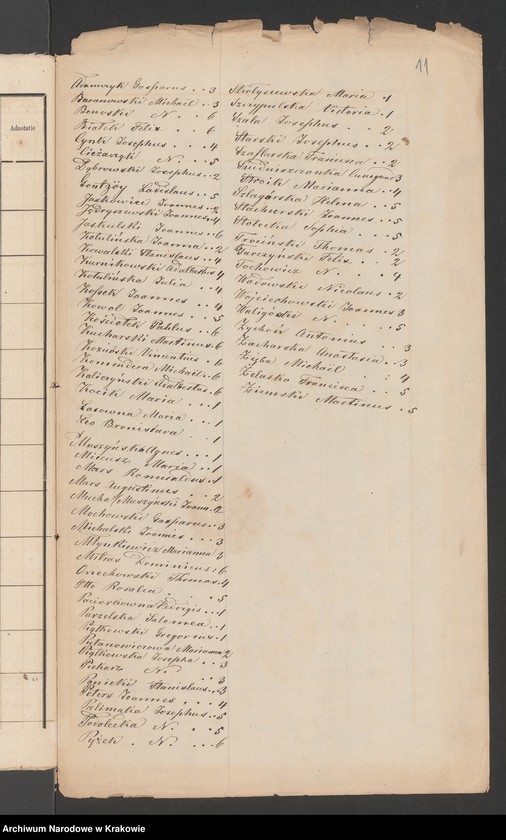 Adnotatie
11
Adamczyk Gasparus . . 3
Baranowski Michaël . . 3
Benoski N. . . 6
Białek Felix . . 6
Cynk Josephus . . . 4
Ciężarzyk N. . . 5
Dąbrowski Josephus . . 2
Ladislaus . . 5
Jaskowicz Joannes . . 2
Jędryszewski Joannes . . 4
Jaskulski Joannes . . 6
Kotulińska Joanna . . 2
Kowalski Stanislaus . . 4
Kurnikowski Adalbertus 4
Kotulińska Julia . . 4
Kossek Joannes . . 4
Kowal Joannes . . 5
Kościołek Paulus . . 6
Kucharski Martinus . . 6
Koziński Vincentius . . 6
Komendera Michaël . . 6
Kaliczyński Adalbertus . . 6
Kocik Maria . . . 1
Lasowna Maria . . . 1
Leo Bronislava . . 1
Muszyńska Agnes . . . 1
Miecusz Maria . . 1
Mars Romualdus . . 1
Mars Augustinus . . 2
Mucha/Muszyński Joann. 2
Mochowski Gasparus . . 3
Michalski Joannes . . . 3
Młynkiewicz Marianna 3
Mitras Dominicus : 6
Orzechowski Thomas . 4
Otto Rosalia . . . 5
Paciorkowna Hedvigis . . 1
Parzelska Salomea . . 1
Piątkowski Gregorius . . 1
Putanowiczowa Marianna 2
Piątkowska Josepha . . 3
Piekarz N. . . 3
Panicki Stanislaus . . 3
Peters Joannes . . . 4
Palimąka Josephus . . 5
Powolecka N. . . 5
Pyżek . N. . . . 6
Skołyszewska Maria . 1
Szczypulska Victoria . 1
Szata Josephus . . 2
Starski Josephus . . 2
Szaflarska Francisca . . 2
3
Stroik Marianna . . 4
Szlagórska Helena . . 5
Stachurski Joannes . . 5
Stolecka Sophia . . . 5
Trociński Thomas . 2
Tarczyński Felix . . 2
Tochowicz N. . . . 4
Wadowski Nicolaus . 2
Wojciechowski Joannes 3
Waligórski N. . . . 5
Zychoń Antonius . . . 3
Zacharska Anastasia . . 3
Zięba Michaël . : 4
Żelasko Francisca . . 5
Ziemski Martinus . 5
Archiwum Narodowe w Krakowie